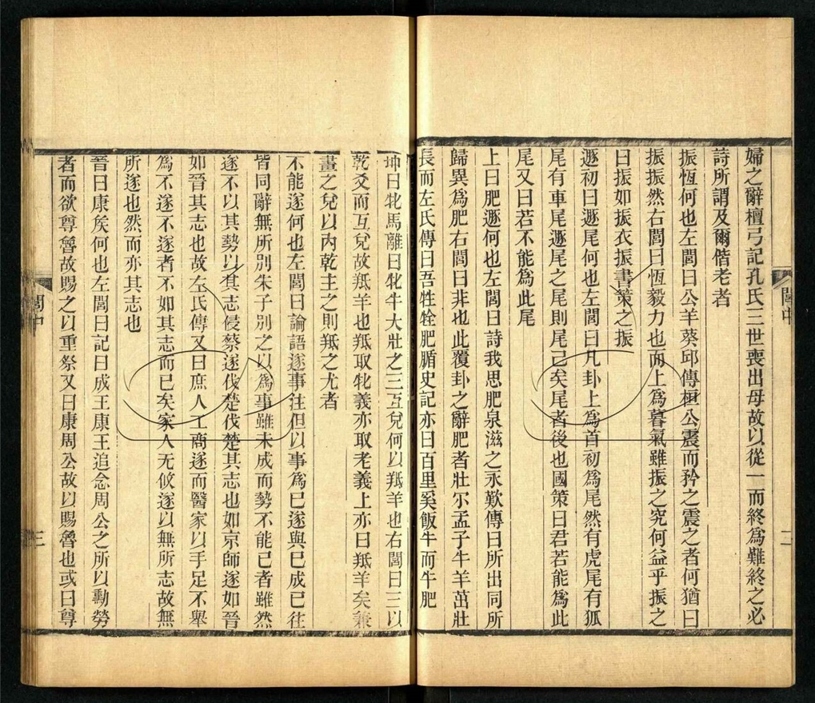 婦之辭檀弓記孔氏三世喪出母故以從一而終爲難終之必
詩所謂及爾偕老者
振恆何也左閭曰公羊葵邱傳桓公震而矜之震之者何猶曰
振振然右閭曰恆毅力也而上爲暮氣雖振之究何益乎振之
曰振如振衣振書策之振
遯初曰遯尾何也左閭曰凡卦上爲首初爲尾然有虎尾有狐
尾有車尾遯尾之尾則尾已矣尾者後也國策曰君若能爲此
尾又曰若不能爲此尾
上曰肥遯何也左閭曰詩我思肥泉滋之永歎傳曰所出同所
歸異爲肥右閭曰非也此覆卦之辭肥者壯尒孟子牛羊茁壯
長而左氏傳曰吾牲牷肥腯史記亦曰百里奚飯牛而牛肥
閭中
二
坤曰牝馬離曰牝牛大壯之三互兌何以羝羊也右閭曰三以
乾爻而互兌故羝羊也羝取牝義亦取老義上亦曰羝羊矣兼
畫之兌以內乾主之則羝之尤者
不能遂何也左閭曰論語遂事注但以事爲已遂與已成已往
皆同辭無所別朱子別之以爲事雖未成而勢不能已者雖然
遂不以其勢以其志侵蔡遂伐楚伐楚其志也如京師遂如晉
如晉其志也故左氏傳又曰庶人工商遂而醫家以手足不舉
爲不遂不遂者不如其志而已矣家人无攸遂以無所志故無
所遂也然而亦其志也
晉曰康矦何也左閭曰記曰成王康王追念周公之所以勳勞
者而欲尊魯故賜之以重祭又曰康周公故以賜魯也或曰尊
閭中
三